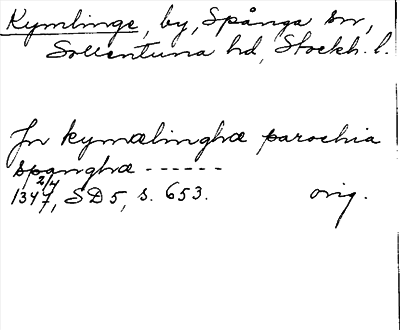 Kymlinge, by, Spånga sn,
Sollentuna hd, Stockh. l.
In kymælinghæ parochia
spanghæ ------
1347 2/4, SD 5, s. 653. orig.